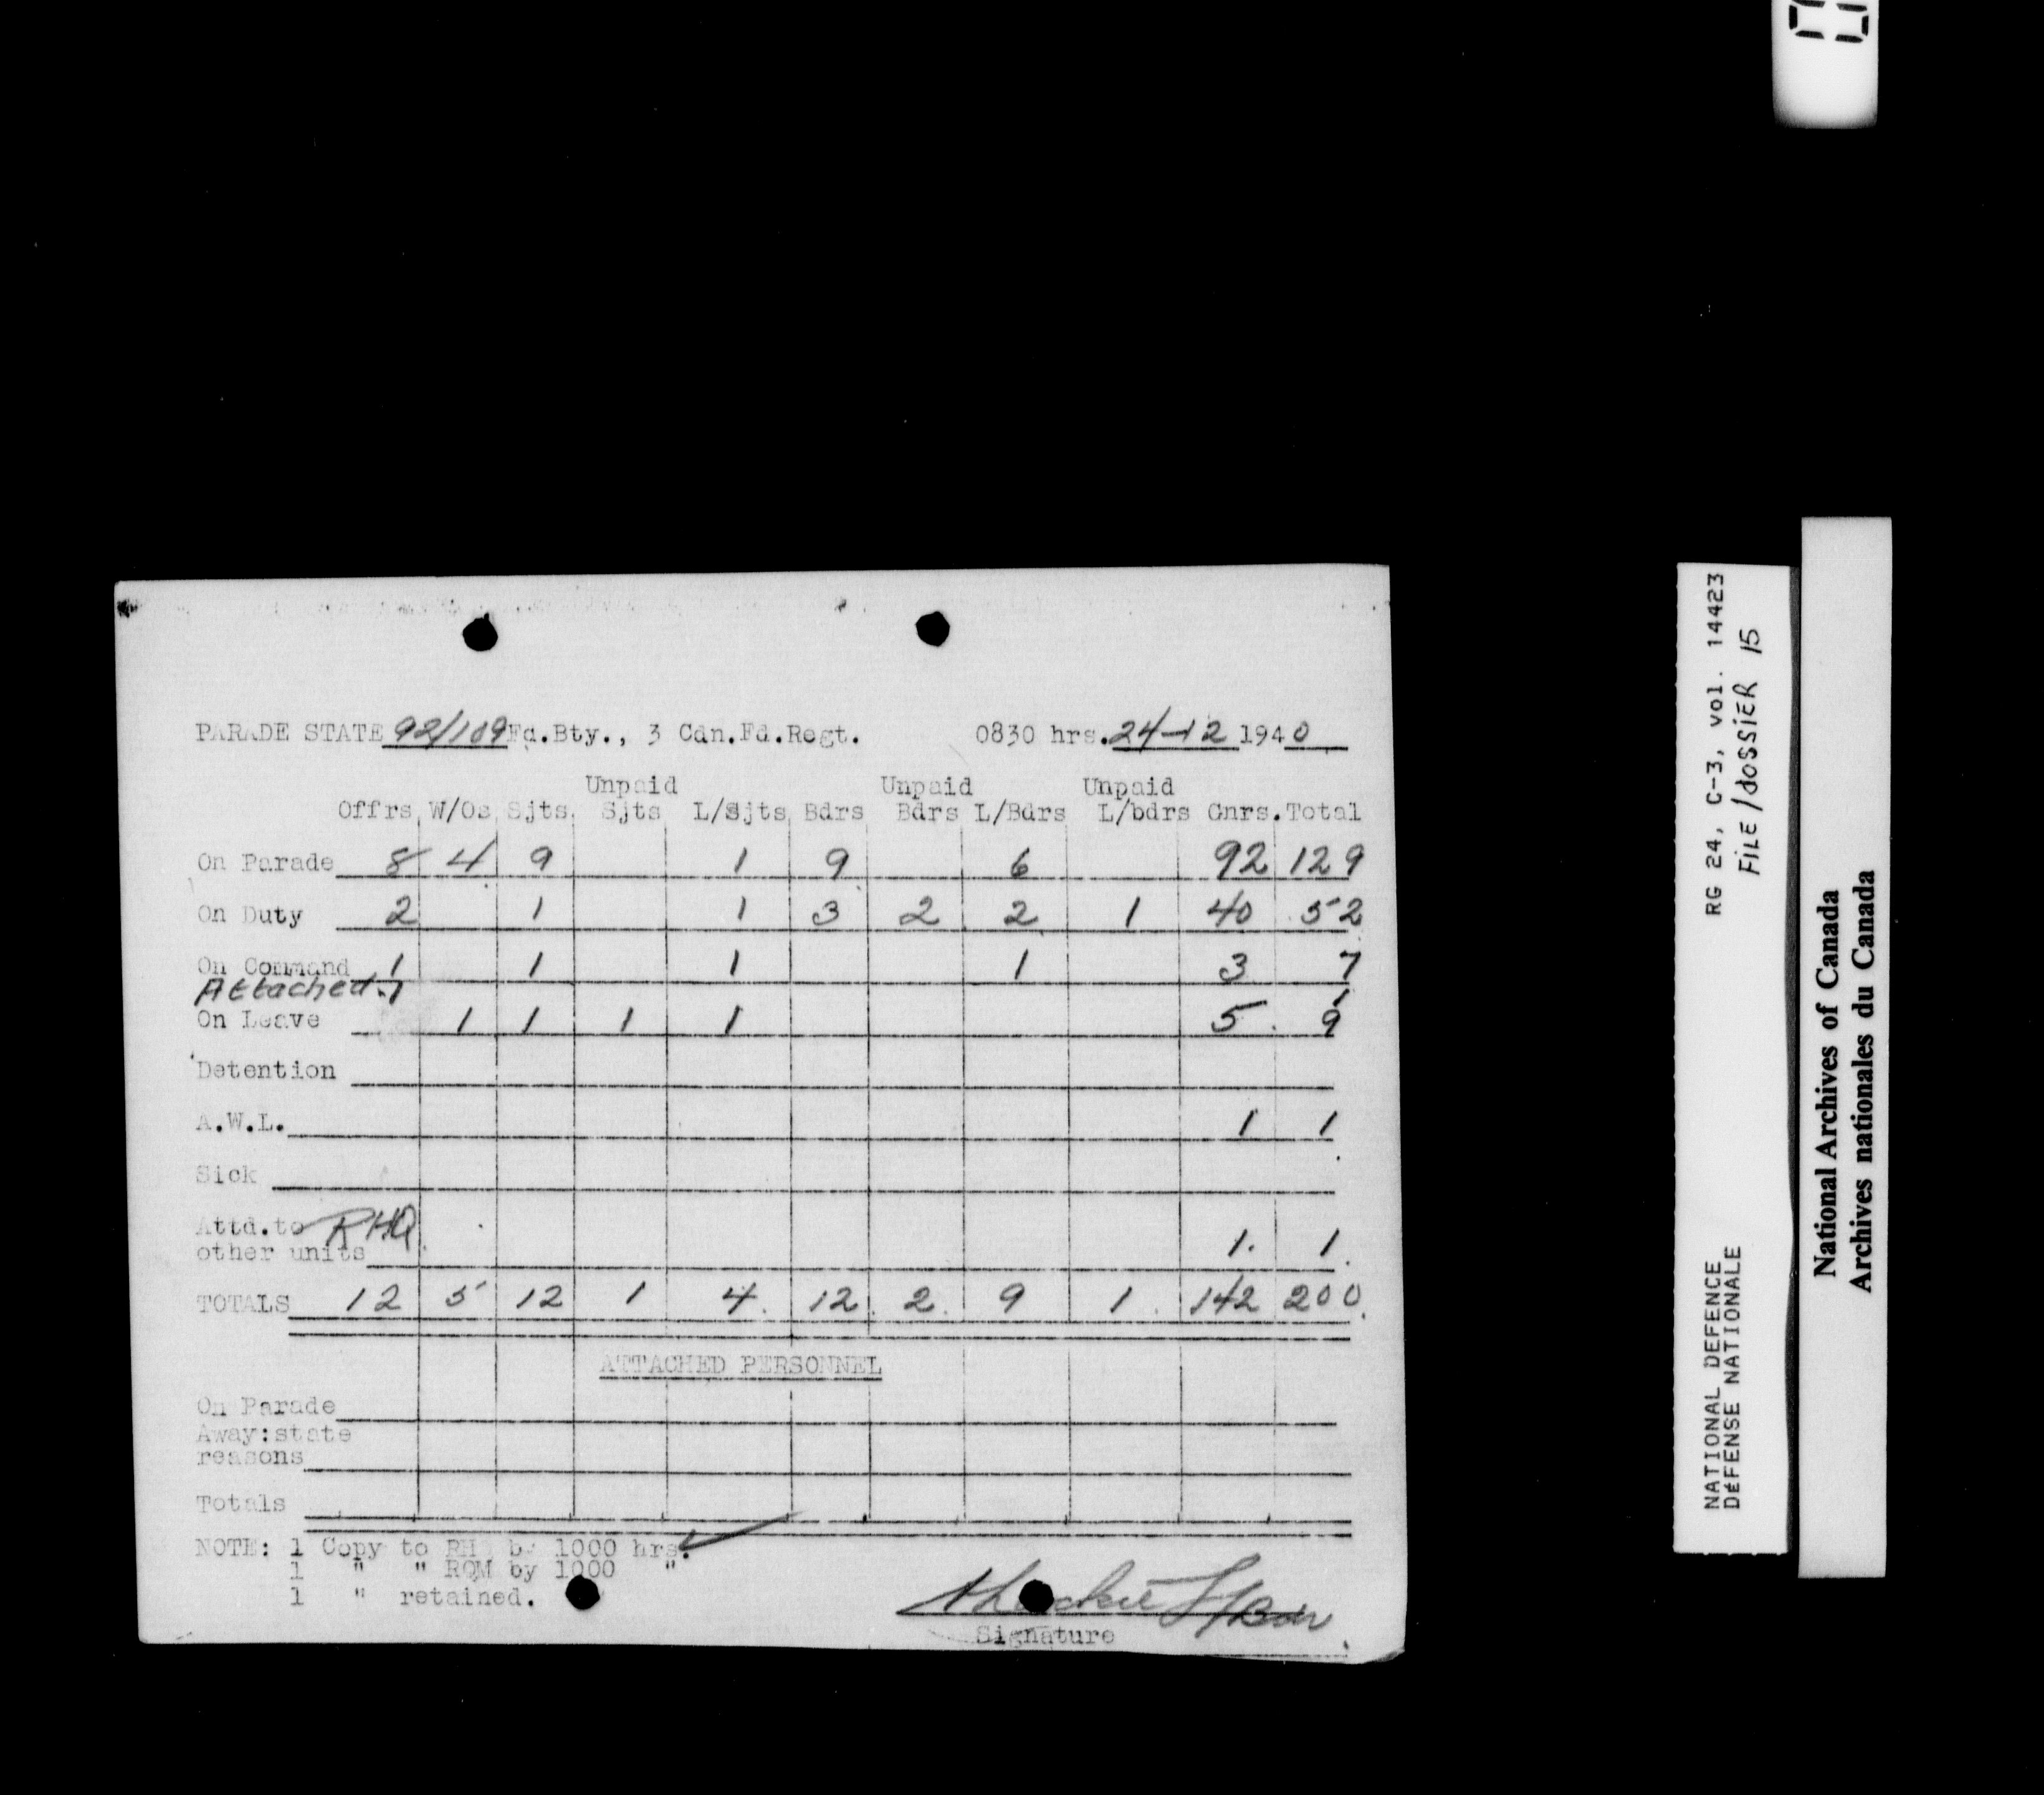 PARADE STATE 92/109 Fd.Bty., 3 Cdn.Fd.Regt. 0830 hrs. 24-12 1940
Unpaid Unpaid Unpaid
Offrs W/Os Sjts. Sjts L/Sjts Bdrs Bdrs L/Bdrs L/bdrs Gnrs. Total
On Parade 8 4 9 1 9 6 92 129
On Duty 2 1 1 3 2 2 1 40 52
On Command 1 1 1 1 3 7
Attached. 1 1
On Leave 1 1 1 1 5 9
Detention
A.W.L. 1 1
Sick
Attd.to RHQ
other units 1. 1.
TOTALS 12 5 12 1 4. 12. 2. 9 1. 142 200.
ATTACHED PERSONNEL
On Parade
Away:state
reasons
Totals
NOTE: 1 Copy to RH by 1000 hrs.
1 " " RQM by 1000 "
1 " retained.
L/Bdr
Signature
RG 24, C-3, vol. 14423
FILE/dossier 15
NATIONAL DEFENCE
DÉFENSE NATIONALE
National Archives of Canada
Archives nationales du Canada